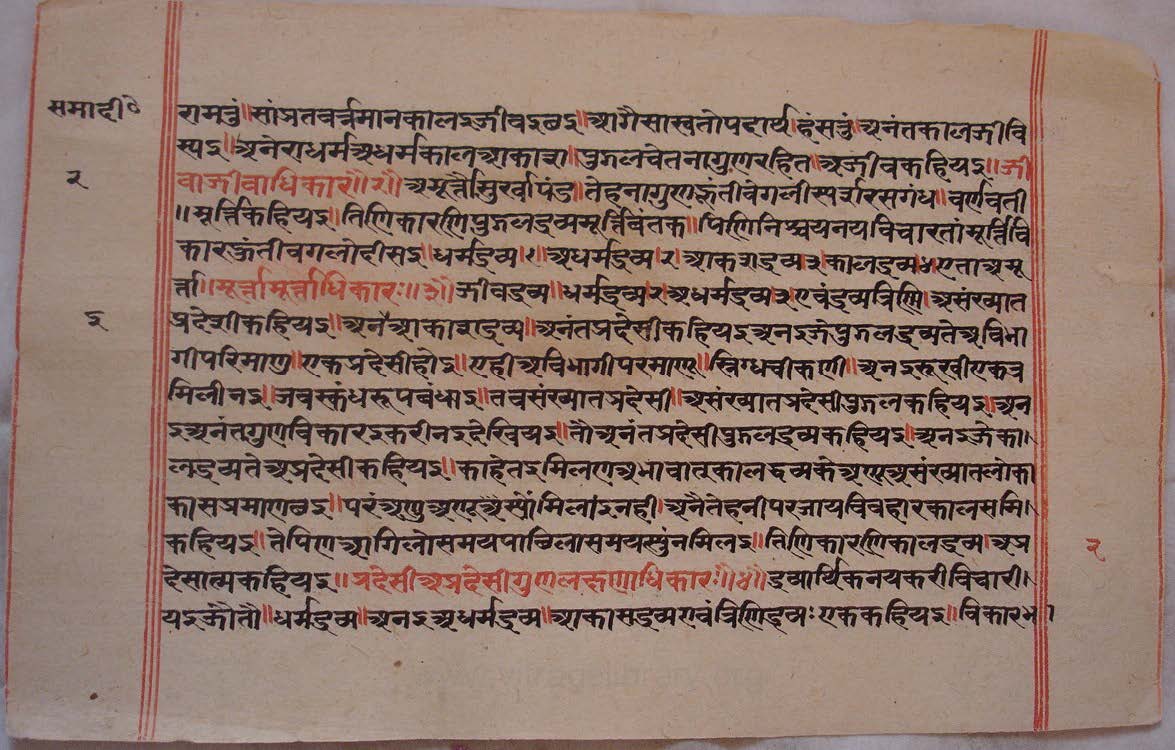 समादी॰
रामनुं॥सांप्रतवर्त्तमानकालइजीवइछइ॥आगैसास्वतोपदार्थ।हंसनुं।अनंतकालजीवि
स्यइ॥अनेराधर्मअधर्मकालआकाश॥पुजलचेतनागुणरहित॥अजीवकहियइ॥जी
२
वाजीवाधिकार॥२॥अमूर्त्तौ तेहनागुण वर्णवती
॥मूर्त्तिकहियइ॥तिणिकारणिपुजलद्रव्यमूर्त्तिवंतक॥पिणिनिश्चयनयविचारतांमूर्त्तिवि
कार धर्मद्रव्य।१।अधर्मद्रव्य२।आकाशद्रव्य३।कालद्रव्य४।एताअमू
र्त्ता॥मूर्त्तामूर्त्ताधिकारः॥३॥जीवद्रव्य॥धर्मद्रव्य२अधर्मद्रव्य३एवंद्रव्यत्रिणि।असंख्यात
३
प्रदेशीकहियइ॥अनैआकाशद्रव्य॥अनंतप्रदेसीकहियइअनइजेपुजलद्रव्यतेअविभा
गीपरिमाणु॥एकप्रदेसीहोइ॥एहीअविभागीपरमाणू॥स्निग्धचीकणी॥अनइलूखीएकत्र
मिलीनइ।जवस्कंधरूपबंधाइ॥तवसंख्यातप्रदेसी॥असंख्यातप्रदेसीपुजलकहियइ॥अन
इअनंतगुणविकारइकरीनइदेखियइ॥तौअनंतप्रदेसीपुजलद्रव्यकहियइ॥अनइजेका।
लद्रव्यतेअप्रदेसीकहियइ॥काहेतइमिलणअभावात्कालद्रव्यकेअणूअसंख्यातलोका
कासप्रमाणछइ॥परंअणु मिलांइनही।अनैतेहनीपरजायविवहारकालसमि।
कहियइ॥तेपिणआगिलोसमयपाछिलासमयस्युंनमिलइ॥तिणिकारणिकालद्रव्य।अप्र
२
देसात्मकहियइ॥प्रदेसीअप्रदेसीगुणलक्षणाधिकारः॥४॥द्रव्यार्थिकनयकरीविचारी।
यइजौतौ॥धर्मद्रव्य॥अनइअधर्मद्रव्य॥आकासद्रव्यएवंत्रिणिद्रव्यःएककहियइ॥विकारभ।